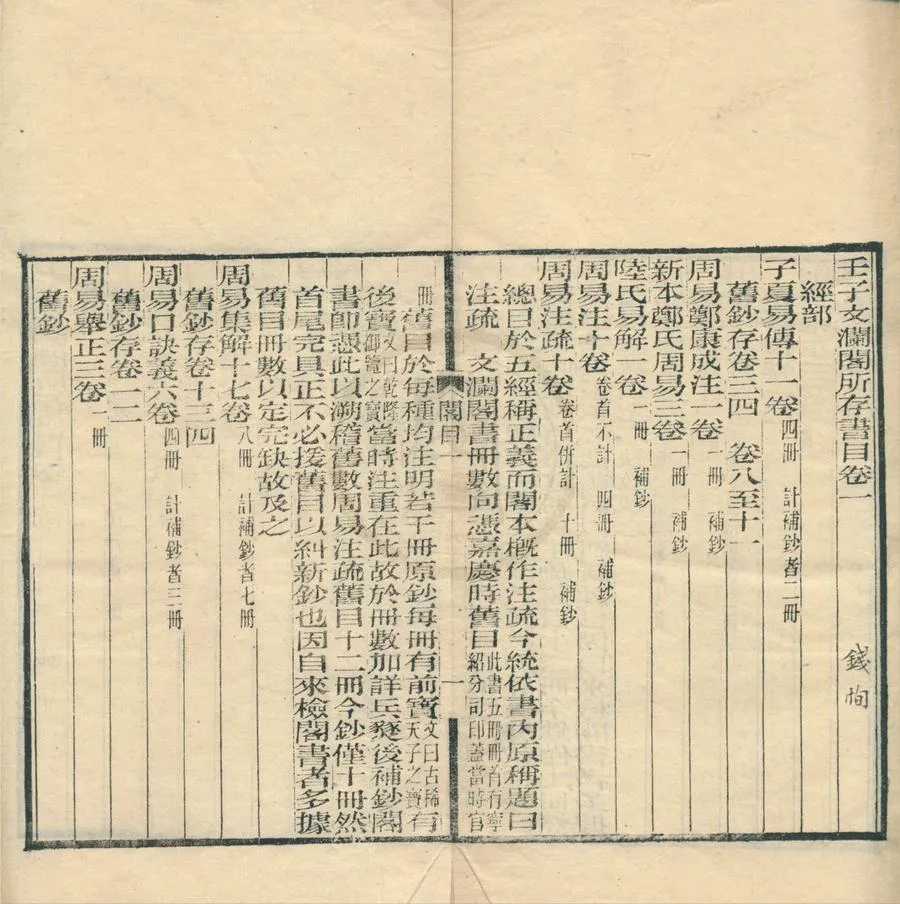 壬子文瀾閣所存書目卷一
錢恂
經部
子夏易傳十一卷 四冊 計補鈔者二冊
舊鈔存卷三四 卷八至十一
周易鄭康成注一卷 一冊 補鈔
新本鄭氏周易三卷 一冊 補鈔
陸氏易解一卷 一冊 補鈔
周易注十卷 卷首不計 四冊 補鈔
周易注疏十卷 卷首併計 十冊 補鈔
總目於五經稱正義而閣本概作注疏今統依書內原稱題曰
注疏 文瀾閣書冊數向憑嘉慶時舊目 此書五冊冊首有寧紹分司印蓋當時官
閣目一
一
冊 舊目於每種均注明若干冊原鈔每冊有前寶 文曰古稀天子之寶 有
後寶 文曰乾隆御覽之寶 當時注重在此故於冊數加詳兵燹後補鈔閣
書卽憑此以溯稽舊數周易注疏舊目十二冊今鈔僅十冊然
首尾完具正不必援舊目以糾新鈔也因自來檢閣書者多據
舊目冊數以定完缺故及之
周易集解十七卷 八冊 計補鈔者七冊
舊鈔存卷十三四
周易口訣義六卷 四冊 計補鈔者三冊
舊鈔存卷一二
周易舉正三卷 一冊
舊鈔